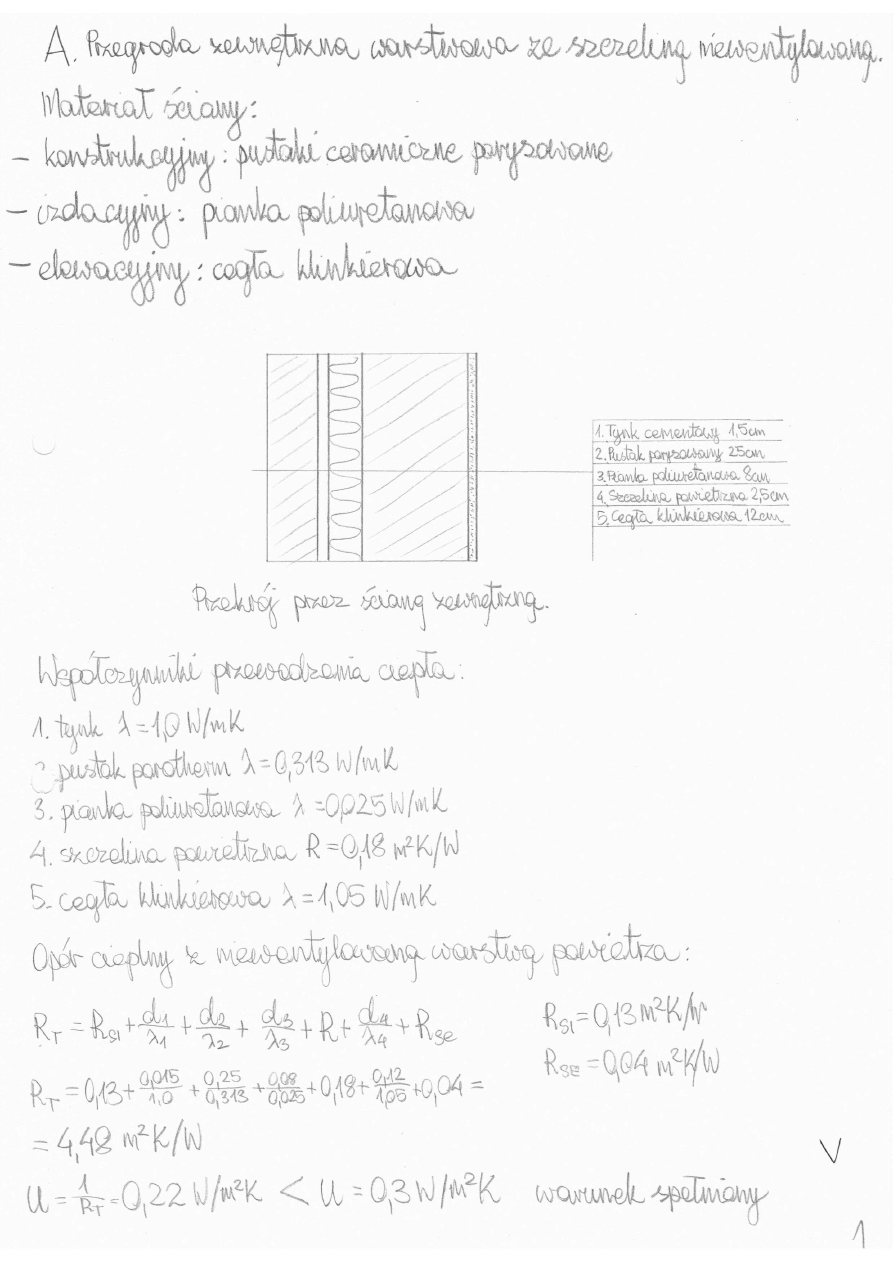 A. Przegroda zewnętrzna warstwowa ze szczeliną niewentylowaną.
Materiał ściany:
- konstrukcyjny: pustaki ceramiczne poryzowane
- izolacyjny: pianka poliuretanowa
- elewacyjny: cegła klinkierowa
1. Tynk cementowy 1,5cm
2. Pustak poryzowany 25cm
3. Pianka poliuretanowa 8cm
4. Szczelina powietrzna 2,5cm
5. Cegła klinkierowa 12cm
Przekrój przez ścianę zewnętrzną.
Współczynniki przewodzenia ciepła:
1. tynk λ=1,0 W/mK
2 pustak porotherm λ=0,313 W/mK
3. pianka poliuretanowa λ=0,025 W/mK
4. szczelina powietrzna R=0,18 m²K/W
5. cegła klinkierowa λ=1,05 W/mK
Opór cieplny z niewentylowaną warstwą powietrza:
R_T = R_SI + d₁/λ₁ + d₂/λ₂ + d₃/λ₃ + R + d₄/λ₄ + R_SE
R_SI = 0,13 m²K/W
R_SE = 0,04 m²K/W
R_T = 0,13 + 0,015/1,0 + 0,25/0,313 + 0,08/0,025 + 0,18 + 0,12/1,05 + 0,04 =
= 4,48 m²K/W
U = 1/R_T = 0,22 W/m²K < U = 0,3 W/m²K warunek spełniany
V
1